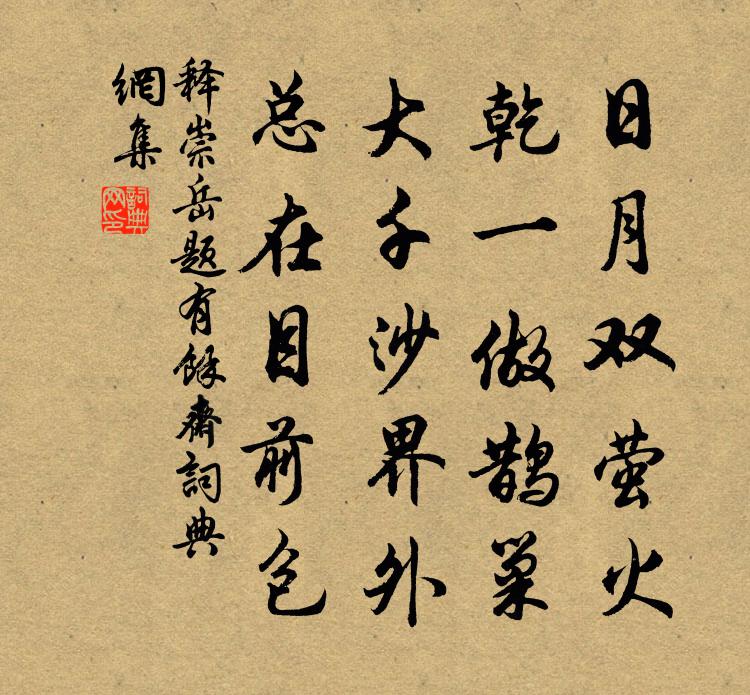 日月双萤火
乾一做鹊巢
大千沙界外
总在目前包
释崇岳题有馀斋詞典
網集
詞典
网印